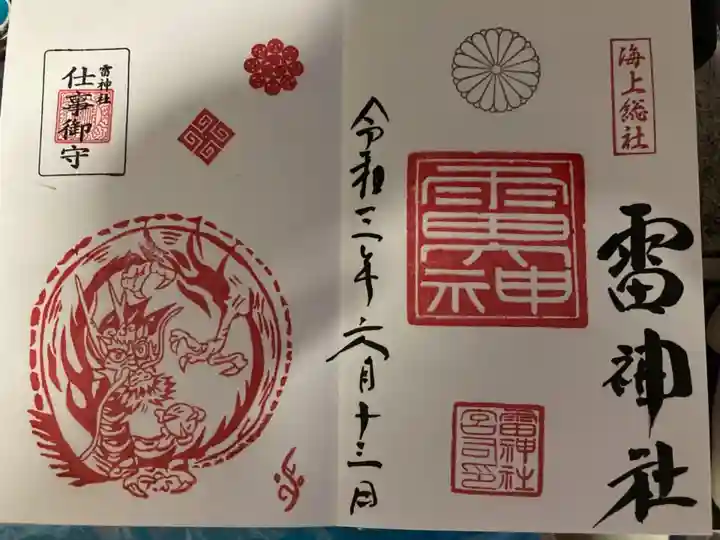 海上総社
雷神社
雷神
雷神社
宮司印
令和三年六月十三日
雷神社
仕事御守